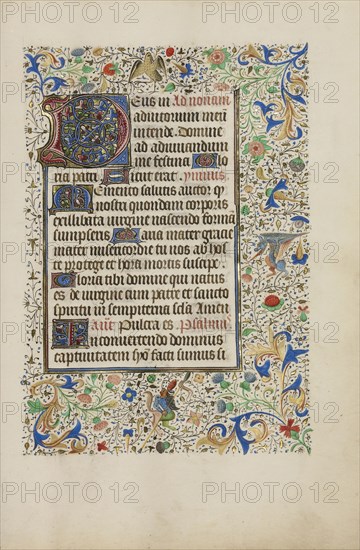 Deus in Ad nonam
adiutorium meū
intende Domine
ad adiuvandum
me festina Glo
ria patri sicut erat ymnus
Memento salutis auctor q̄
nostri quondam corporis
ex illibata virgine nascendo formā
sumpseris Maria mater gracie
mater misericordie tu nos ab hoste
protege et hora mortis suscipe
Gloria tibi domine qui natus
es de virgine cum patre et sancto
spiritu in sempiterna secla Amen
añe Pulcra es Psalmus
In convertendo dominus
captivitatem syon facti sumus si
PHOTO 12